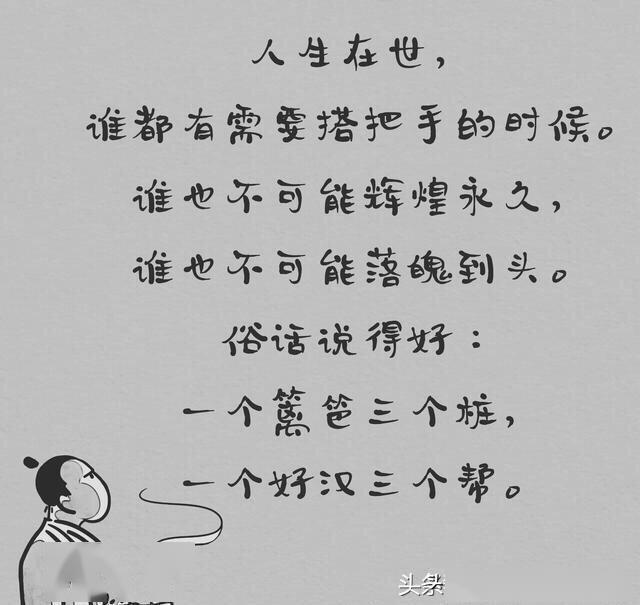 人生在世，
谁都有需要搭把手的时候。
谁也不可能辉煌永久，
谁也不可能落魄到头。
俗话说得好：
一个篱笆三个桩，
一个好汉三个帮。
头条